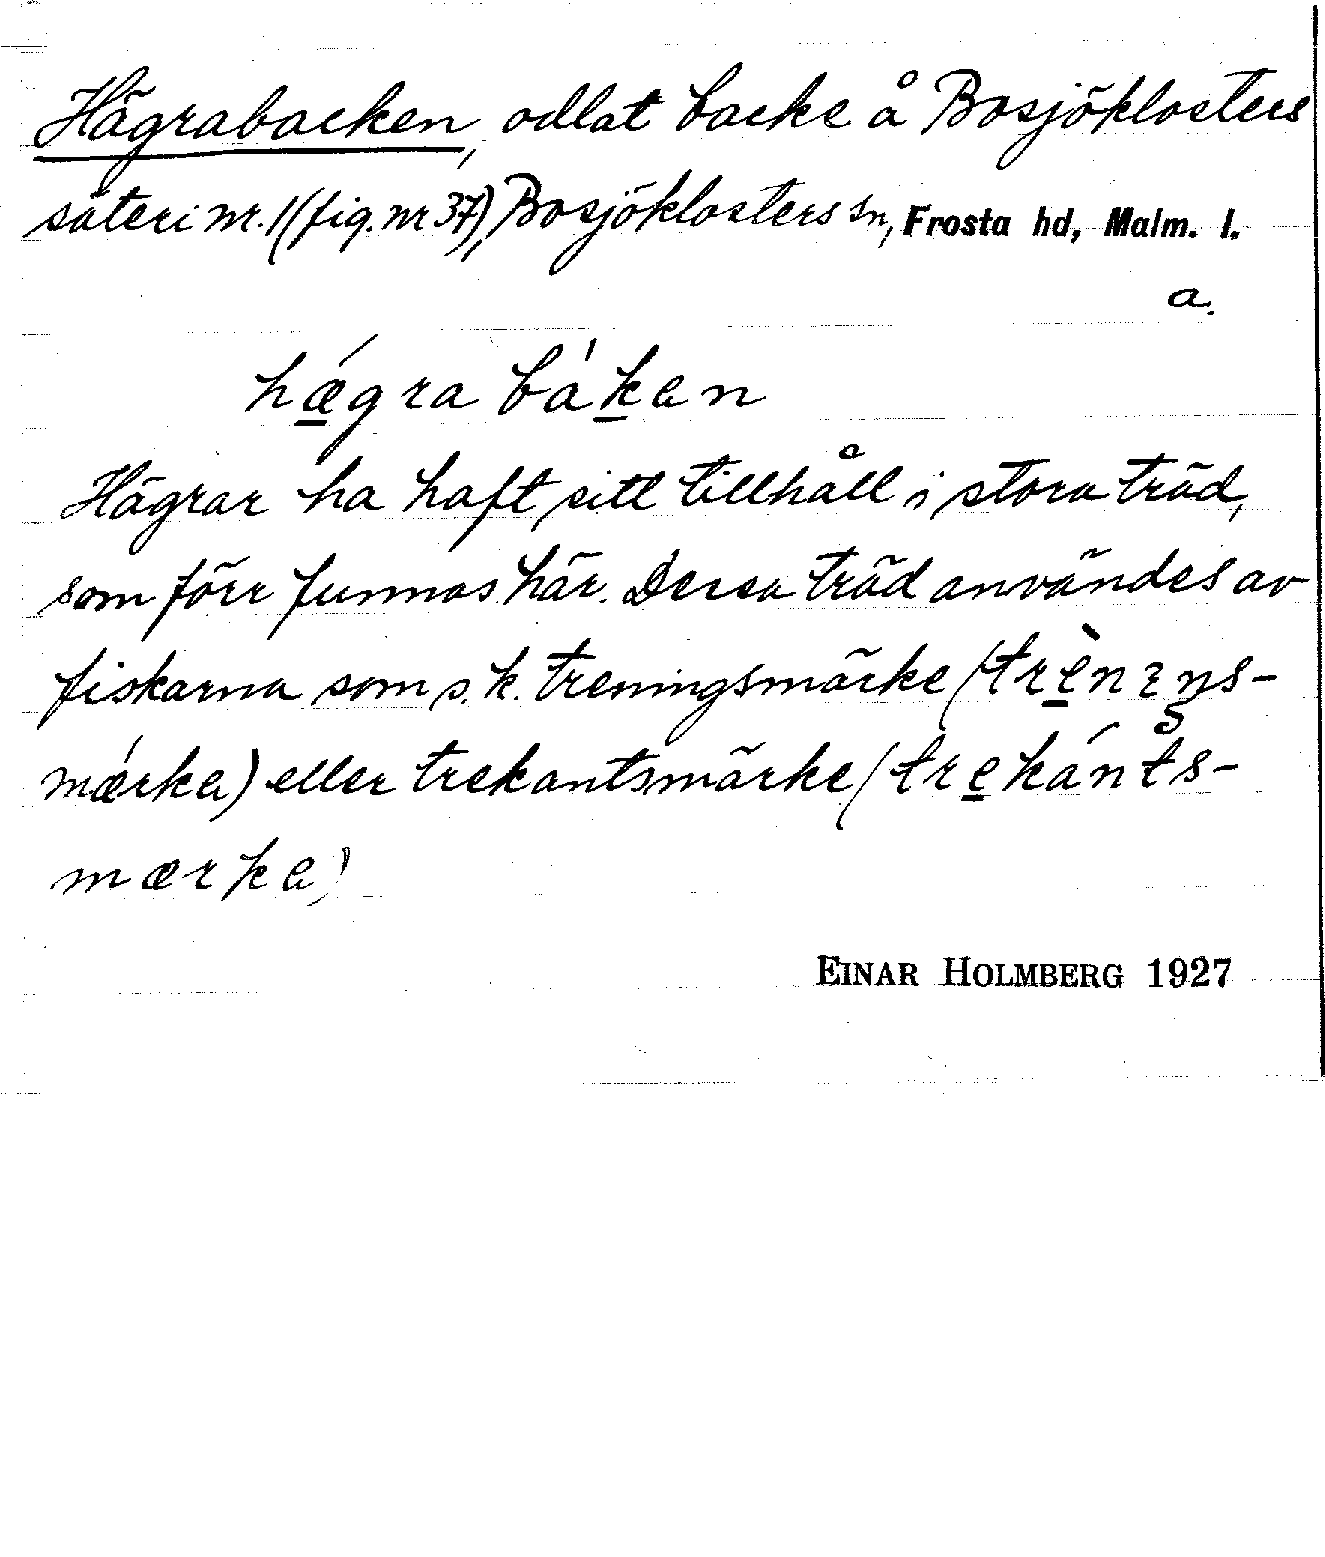 Hägrabacken, odlat backe å Bosjöklosters
säteri nr. 1 (fig. nr 37), Bosjöklosters sn, Frosta hd, Malm. l.
a.
hǽgra bákan
Hägrar ha haft sitt tillhåll i stora träd,
som förr funnos här. Dessa träd användes av
fiskarna som s. k. treningsmärke (trènɪŋs-
mǽrke) eller trekantsmärke (trekánts-
mærke)
EINAR HOLMBERG 1927